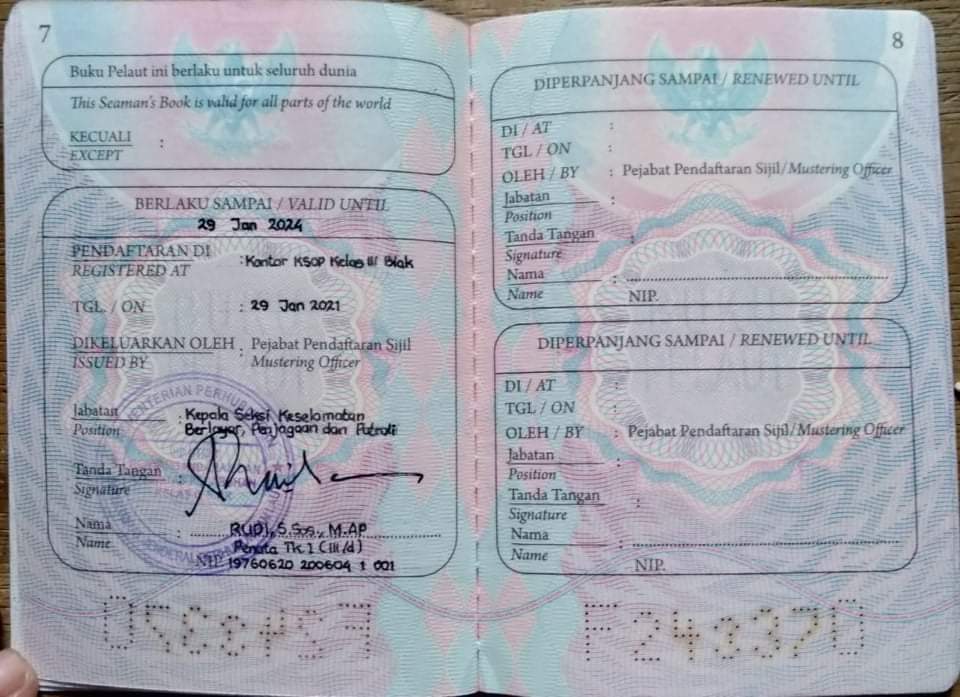 7
Buku Pelaut ini berlaku untuk seluruh dunia
This Seaman's Book is valid for all parts of the world
KECUALI :
EXCEPT
BERLAKU SAMPAI / VALID UNTIL
29 Jan 2024
PENDAFTARAN DI : Kantor KSOP Kelas III Biak
REGISTERED AT
TGL. / ON : 29 Jan 2021
DIKELUARKAN OLEH : Pejabat Pendaftaran Sijil
ISSUED BY Mustering Officer
Jabatan : Kepala Seksi Keselamatan
Position Berlayar, Penjagaan dan Patroli
Tanda Tangan :
Signature
Nama : RUDI, S.Sos., M.AP
Name Penata Tk.I (III/d)
NIP. 19760620 200604 1 001
8
DIPERPANJANG SAMPAI / RENEWED UNTIL
DI / AT :
TGL / ON :
OLEH / BY : Pejabat Pendaftaran Sijil/Mustering Officer
Jabatan :
Position
Tanda Tangan :
Signature
Nama :
Name
NIP.
DIPERPANJANG SAMPAI / RENEWED UNTIL
DI / AT :
TGL / ON :
OLEH / BY : Pejabat Pendaftaran Sijil/Mustering Officer
Jabatan :
Position
Tanda Tangan :
Signature
Nama :
Name
NIP.